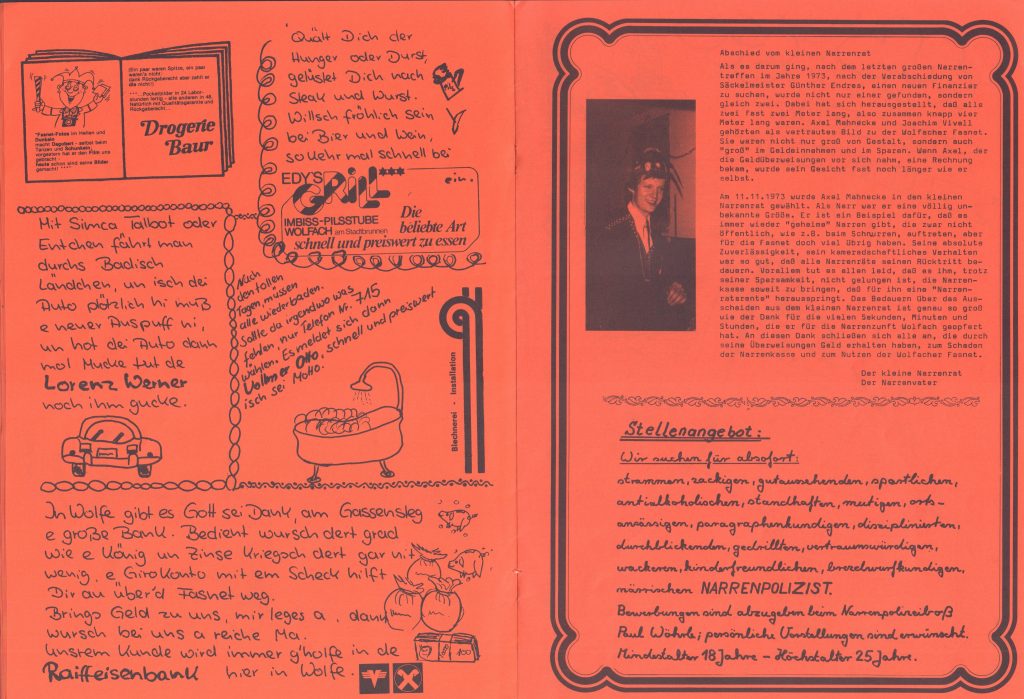 (Ein paar waren Spitze, ein paar
waren's nicht:
dank Rückgaberecht aber zahlt er
die nicht!)
***
. . . Pocketbilder in 24 Labor-
stunden fertig – alle anderen in 48.
Natürlich mit Qualitätsgarantie und
Rückgaberecht!
"Fasnet-Fotos im Hellen und
Dunkeln
macht Dagobert - selbst beim
Tanzen und Schunkeln;
vorgestern hat er den Film uns
gebracht,
heute schon sind seine Bilder
gemacht!" ***
Drogerie
Baur
Quält Dich der
Hunger oder Durst,
gelüstet Dich nach
Steak und Wurst.
Willsch fröhlich sein
bei Bier und Wein,
so kehr mal schnell bei
EDY'S
GRILL***
ein.
IMBISS-PILSSTUBE
WOLFACH am Stadtbrunnen
Die
beliebte Art
schnell und preiswert zu essen
Mit Simca Talbot oder
Entchen fährt man
durchs Badisch
Ländchen, un isch dei
Auto plötzlich hi muß
e neuer Auspuff ni,
un hot dei Auto dann
mol Mucke tut de
Lorenz Werner
noch ihm gucke.
Nach
den tollen
Tagen, müssen
alle wieder baden.
Sollte da irgendwo was
fehlen, nur Telefon Nr. 715
wählen. Es meldet sich dann
Vollmer Otto, schnell und preiswert
isch sei Motto.
Blechnerei - Installation
In Wolfe gibt es Gott sei Dank, am Gassensteg
e große Bank. Bedient wursch dert grad
wie e König un Zinse kriegsch dert gar nit
wenig, e Giro Konto mit em Scheck hilft
Dir au über'd Fasnet weg.
Brings Geld zu uns, mir leges a, dann
wursch bei uns a reiche Ma.
unserm Kunde wird immer g'holfe in de
Raiffeisenbank hier in Wolfe.
100
Abschied vom kleinen Narrenrat
Als es darum ging, nach dem letzten großen Narren-
treffen im Jahre 1973, nach der Verabschiedung von
Säckelmeister Günther Endres, einen neuen Finanzier
zu suchen, wurde nicht nur einer gefunden, sondern
gleich zwei. Dabei hat sich herausgestellt, daß alle
zwei fast zwei Meter lang, also zusammen knapp vier
Meter lang waren. Axel Mahnecke und Joachim Vivell
gehörten als vertrautes Bild zu der Wolfacher Fasnet.
Sie waren nicht nur groß von Gestalt, sondern auch
"groß" im Geldeinnehmen und im Sparen. Wenn Axel, der
die Geldüberweisungen vor sich nahm, eine Rechnung
bekam, wurde sein Gesicht fast noch länger wie er
selbst.
Am 11.11.1973 wurde Axel Mahnecke in den kleinen
Narrenrat gewählt. Als Narr war er eine völlig un-
bekannte Größe. Er ist ein Beispiel dafür, daß es
immer wieder "geheime" Narren gibt, die zwar nicht
öffentlich, wie z.B. beim Schnurren, auftreten, aber
für die Fasnet doch viel übrig haben. Seine absolute
Zuverlässigkeit, sein kameradschaftliches Verhalten
war so gut, daß alle Narrenräte seinen Rücktritt be-
dauern. Vorallem tut es allen leid, daß es ihm, trotz
seiner Sparsamkeit, nicht gelungen ist, die Narren-
kasse soweit zu bringen, daß für ihn eine "Narren-
ratsrente" herausspringt. Das Bedauern über das Aus-
scheiden aus dem kleinen Narrenrat ist genau so groß
wie der Dank für die vielen Sekunden, Minuten und
Stunden, die er für die Narrenzunft Wolfach geopfert
hat. An diesen Dank schließen sich alle an, die durch
seine Überweisungen Geld erhalten haben, zum Schaden
der Narrenkasse und zum Nutzen der Wolfacher Fasnet.
Der kleine Narrenrat
Der Narrenvater
Stellenangebot:
Wir suchen für absofort:
strammen, zackigen, gutaussehenden, sportlichen,
antialkoholischen, standhaften, mutigen, orts-
ansässigen, paragraphenkundigen, disciplinierten,
durchblickenden, gedrillten, vertrauenswürdigen,
wackeren, kinderfreundlichen, brezelwurfkundigen,
närrischen NARRENPOLIZIST.
Bewerbungen sind abzugeben beim Narrenpolizeiboß
Paul Wöhrle; persönliche Vorstellungen sind erwünscht.
Mindestalter 18 Jahre – Höchstalter 25 Jahre.